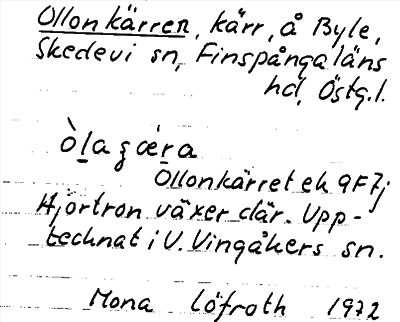 Ollonkärren, kärr, å Byle,
Skedevi sn, Finspånga läns
hd, Östg.l.
òlaʒœ́ra
Ollonkärret ek 9F7j
Hjortron växer där. Upp-
tecknat i V. Vingåkers sn.
Mona Löfroth 1972